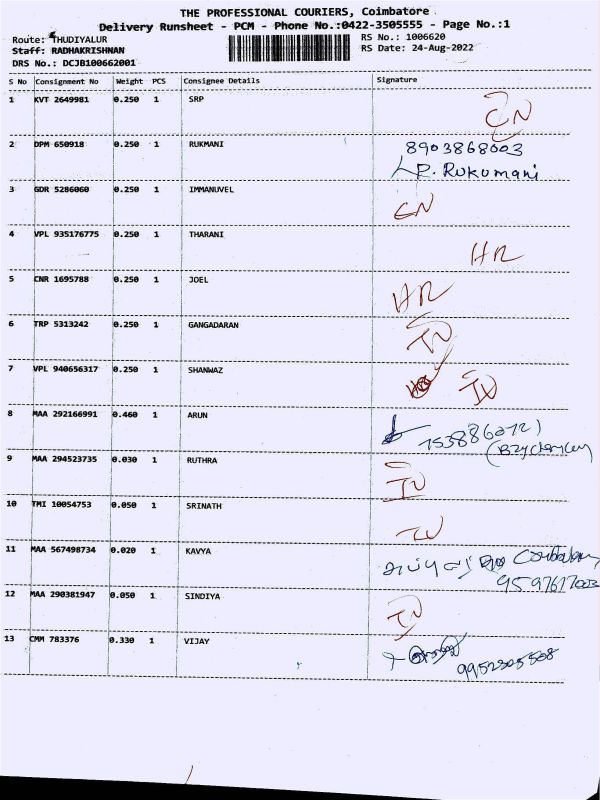 THE PROFESSIONAL COURIERS, Coimbatore
Delivery Runsheet - PCM - Phone No.:0422-3505555 - Page No.:1
Route: THUDIYALUR RS No.: 1006620
Staff: RADHAKRISHNAN RS Date: 24-Aug-2022
DRS No.: DCJB100662001
S No Consignment No Weight PCS Consignee Details Signature
1 KVT 2649981 0.250 1 SRP
2 DPM 650918 0.250 1 RUKMANI 8903868003
P. Rukumani
3 GDR 5286060 0.250 1 IMMANUVEL
4 VPL 935176775 0.250 1 THARANI HR
5 CNR 1695788 0.250 1 JOEL HR
6 TRP 5313242 0.250 1 GANGADARAN
7 VPL 940656317 0.250 1 SHANWAZ
8 MAA 292166991 0.460 1 ARUN
9 MAA 294523735 0.030 1 RUTHRA
10 TMI 10054753 0.050 1 SRINATH
11 MAA 567498734 0.020 1 KAVYA
12 MAA 290381947 0.050 1 SINDIYA
13 CMM 783376 0.330 1 VIJAY